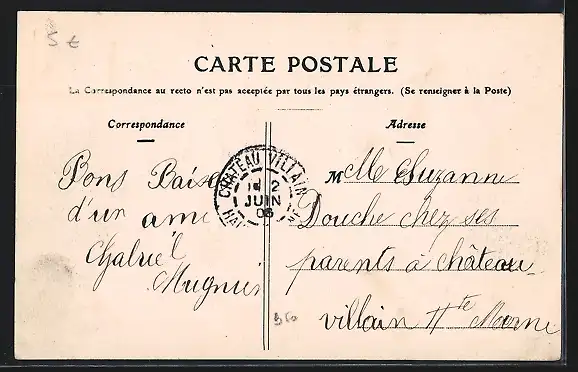 5 €
CARTE POSTALE
La Correspondance au recto n'est pas acceptée par tous les pays étrangers. (Se renseigner à la Poste)
Correspondance
Bons Baise
d'un ami
Mugnier
CHATEAU VILLAIN
2
JUIN
Adresse
Mlle Suzanne
Douche chez ses
parents à château
villain Hte Marne